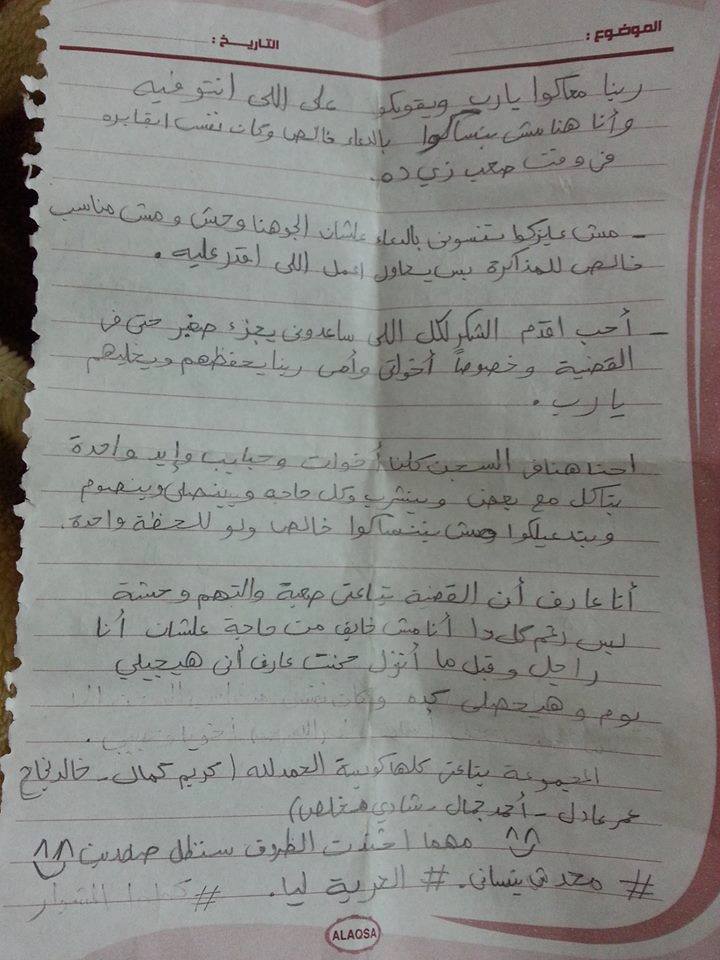 الموضوع : التاريخ :
ربنا معاكوا يارب ويقويكو على اللى انتو فيه
وأنا هنا مش بنساكوا بالدعاء خالص وكان نفسى ابقا بره
فى وقت صعب زي ده.
- مش عايزكوا تنسونى بالدعاء علشان الجو هنا وحش ومش مناسب
خالص للمذاكرة بس بحاول اعمل اللى اقدر عليه .
- أحب اقدم الشكر لكل اللى ساعدونى بجزء صغير حتى فى
القضية وخصوصاً أخواتى وأمى ربنا يحفظهم ويخليهم
يارب .
احنا هنا فى السجن كلنا أخوات وحبايب وإيد واحدة
بناكل مع بعض وبنشرب وكل حاجه وبنصلى وبنصوم
وبندعيلكوا ومش بننساكوا خالص ولو للحظة واحدة.
أنا عارف أن القضية بتاعتى صعبة والتهم وحشة
بس رغم كل دا أنا مش خايف من حاجة علشان أنا
راجل وقبل ما أنزل كنت عارف أنى هيجيلي
يوم وهيحصلى كده
المجموعة بتاعتى كلها كويسة الحمد لله ( كريم كمال - خالد نجاح
عمر عادل - أحمد جمال - شادي مخلص )
مهما اشتدت الظروف سنظل صامدين
# محدش ينسانى . # الحرية ليا . #
ALAQSA